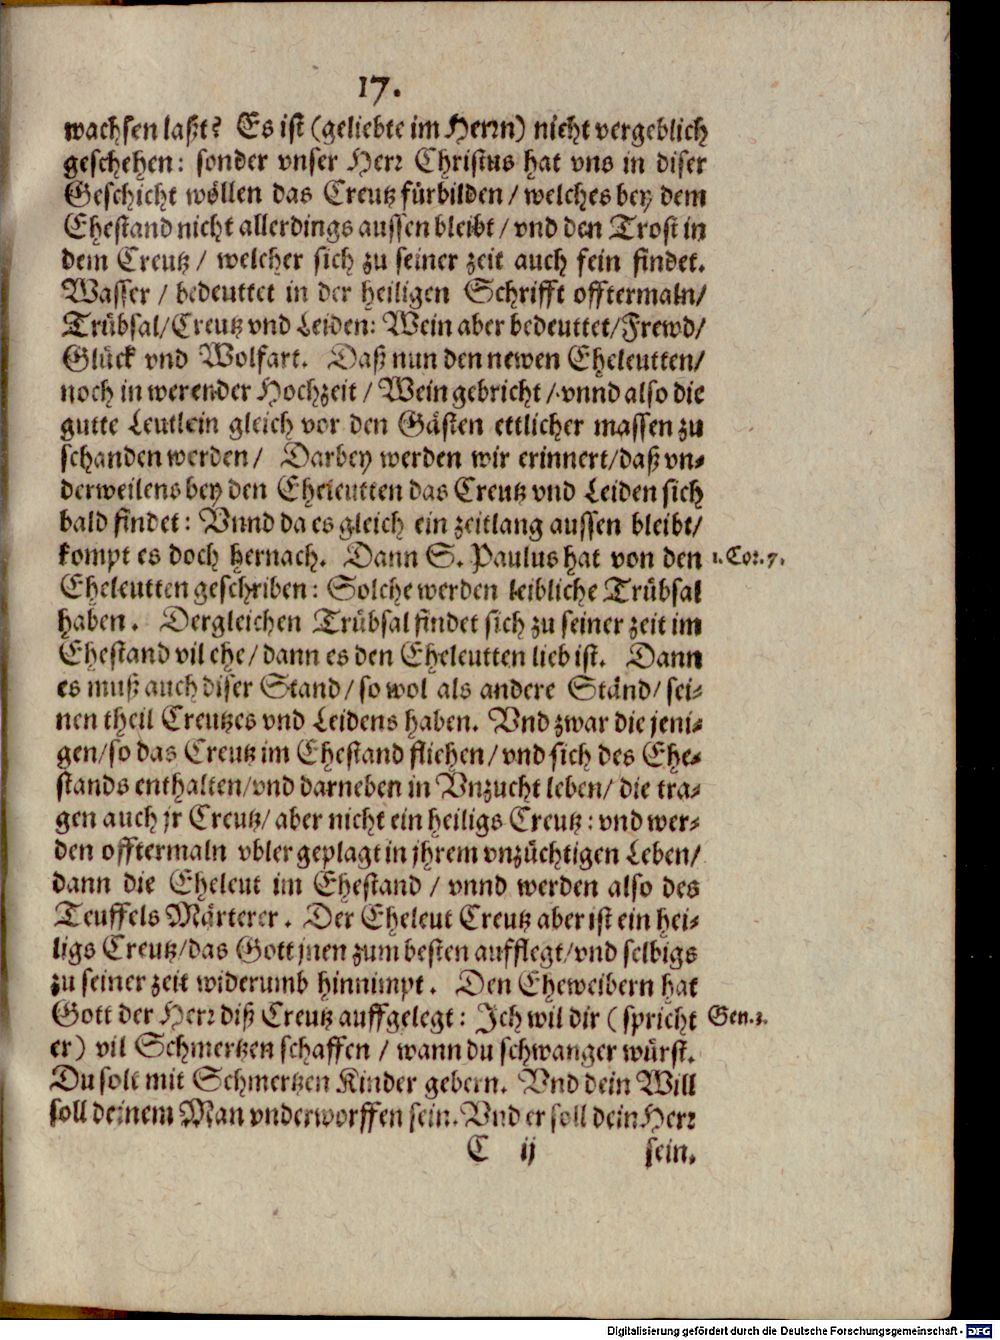 17.
wachsen laßt? Es ist (geliebte im Herrn) nicht vergeblich
geschehen: sonder vnser Herr Christus hat vns in diser
Geschicht wöllen das Creutz fürbilden / welches bey dem
Ehestand nicht allerdings aussen bleibt / vnd den Trost in
dem Creutz / welcher sich zu seiner zeit auch fein findet.
Wasser / bedeuttet in der heiligen Schrifft offtermaln/
Trübsal/Creutz vnd Leiden: Wein aber bedeuttet/Frewd/
Glück vnd Wolfart. Daß nun den newen Eheleutten/
noch in werender Hochzeit / Wein gebricht / vnnd also die
gutte Leutlein gleich vor den Gästen ettlicher massen zu
schanden werden/ Darbey werden wir erinnert/daß vn-
derweilens bey den Eheleutten das Creutz vnd Leiden sich
bald findet: Vnnd da es gleich ein zeitlang aussen bleibt/
kompt es doch hernach. Dann S. Paulus hat von den 1. Cor. 7.
Eheleutten geschriben: Solche werden leibliche Trübsal
haben. Dergleichen Trübsal findet sich zu seiner zeit im
Ehestand vil ehe/dann es den Eheleutten lieb ist. Dann
es muß auch diser Stand/so wol als andere Ständ/sei-
nen theil Creutzes vnd Leidens haben. Vnd zwar die jeni-
gen/so das Creutz im Ehestand fliehen/vnd sich des Ehe-
stands enthalten/vnd darneben in Vnzucht leben/ die tra-
gen auch jr Creutz/ aber nicht ein heiligs Creutz: vnd wer-
den offtermaln vbler geplagt in jhrem vnzüchtigen Leben/
dann die Eheleut im Ehestand / vnnd werden also des
Teuffels Märterer. Der Eheleut Creutz aber ist ein hei-
ligs Creutz/das Gott jnen zum besten aufflegt/vnd selbigs
zu seiner zeit widerumb hinnimpt. Den Eheweibern hat
Gott der Herr diß Creutz auffgelegt: Ich wil dir (spricht Gen. 3.
er) vil Schmertzen schaffen / wann du schwanger würst.
Du solt mit Schmertzen Kinder gebern. Vnd dein Will
soll deinem Man vnderworffen sein. Vnd er soll dein Herr
C ij sein.
Digitalisierung gefördert durch die Deutsche Forschungsgemeinschaft - DFG